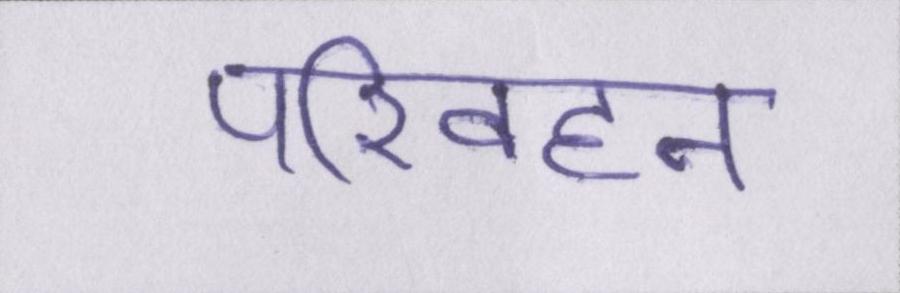 परिवहन